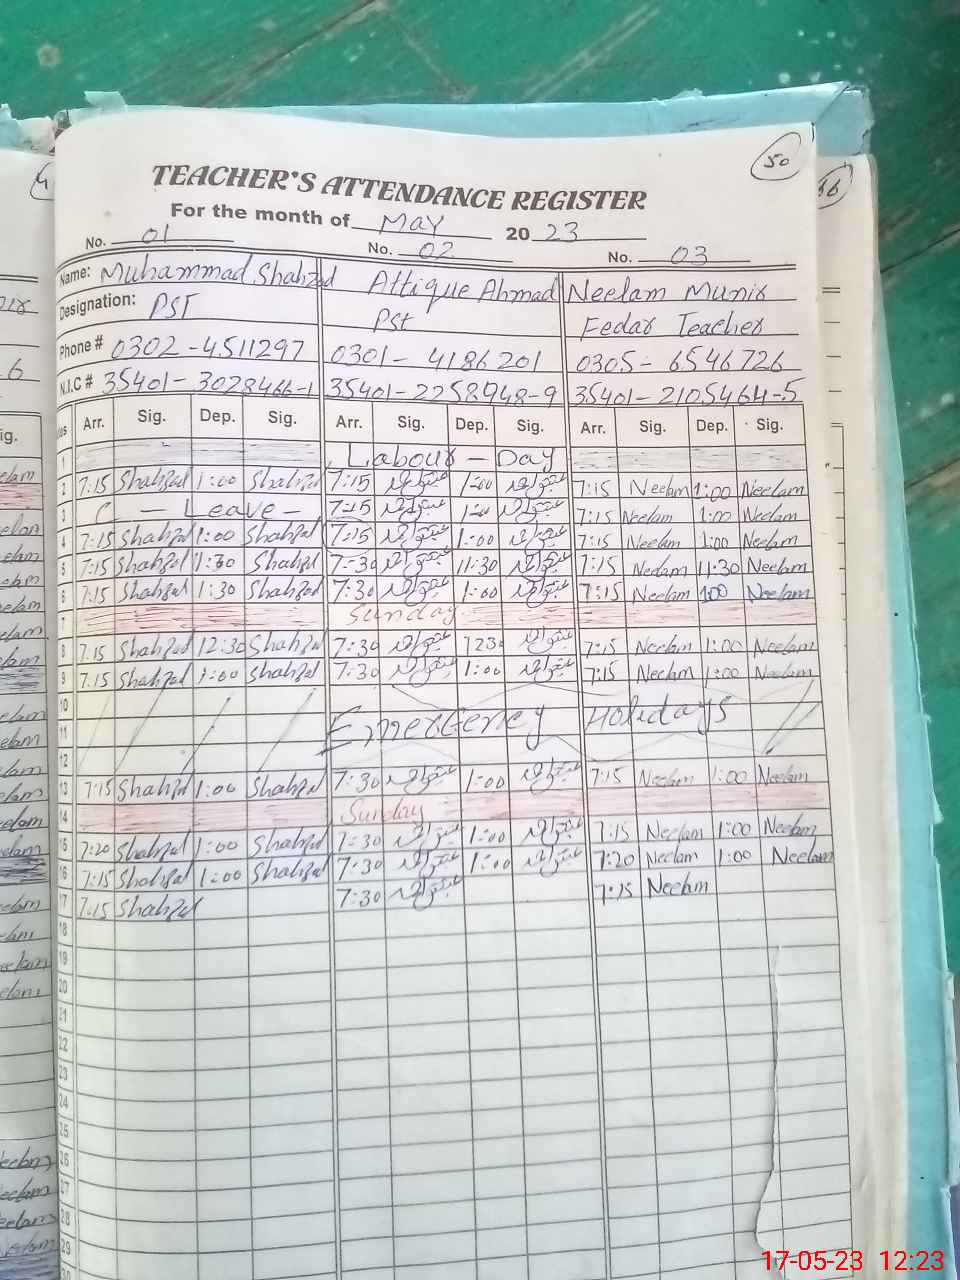 50
TEACHER'S ATTENDANCE REGISTER
For the month of May 2023
No. 01 No. 02 No. 03
Name: Muhammad Shahzad Attique Ahmad Neelam Munir
Designation: PST Pst Fedar Teacher
Phone # 0302-4511297 0301-4186201 0305-6546726
N.I.C # 35401-3028466-1 35401-2258948-9 35401-2105464-5
Arr. Sig. Dep. Sig. Arr. Sig. Dep. Sig. Arr. Sig. Dep. Sig.
1 Labour - Day
2 7:15 Shahzad 1:00 Shahzad 7:15 1:00 7:15 Neelam 1:00 Neelam
3 C - Leave - 7:15 1:00 7:15 Neelam 1:00 Neelam
4 7:15 Shahzad 1:00 Shahzad 7:15 1:00 7:15 Neelam 1:00 Neelam
5 7:15 Shahzad Shahzad 7:30 11:30 7:15 Neelam 11:30 Neelam
6 7:15 Shahzad 1:30 Shahzad 7:30 1:00 7:15 Neelam 1:00 Neelam
7 Sunday
8 7:15 Shahzad 12:30 Shahzad 7:30 7:15 Neelam 1:00 Neelam
9 7:15 Shahzad 1:00 Shahzad 7:30 1:00 7:15 Neelam 1:00 Neelam
10
11 Emergency Holidays
12
13 7:15 Shahzad 1:00 Shahzad 7:30 1:00 7:15 Neelam 1:00 Neelam
14 Sunday
15 7:20 Shahzad 1:00 Shahzad 7:30 1:00 7:15 Neelam 1:00 Neelam
16 7:15 Shahzad 1:00 Shahzad 7:30 1:00 7:20 Neelam 1:00 Neelam
17 7:15 Shahzad 7:30 7:15 Neelam
18
19
20
21
22
23
24
25
26
27
28
29
17-05-23 12:23